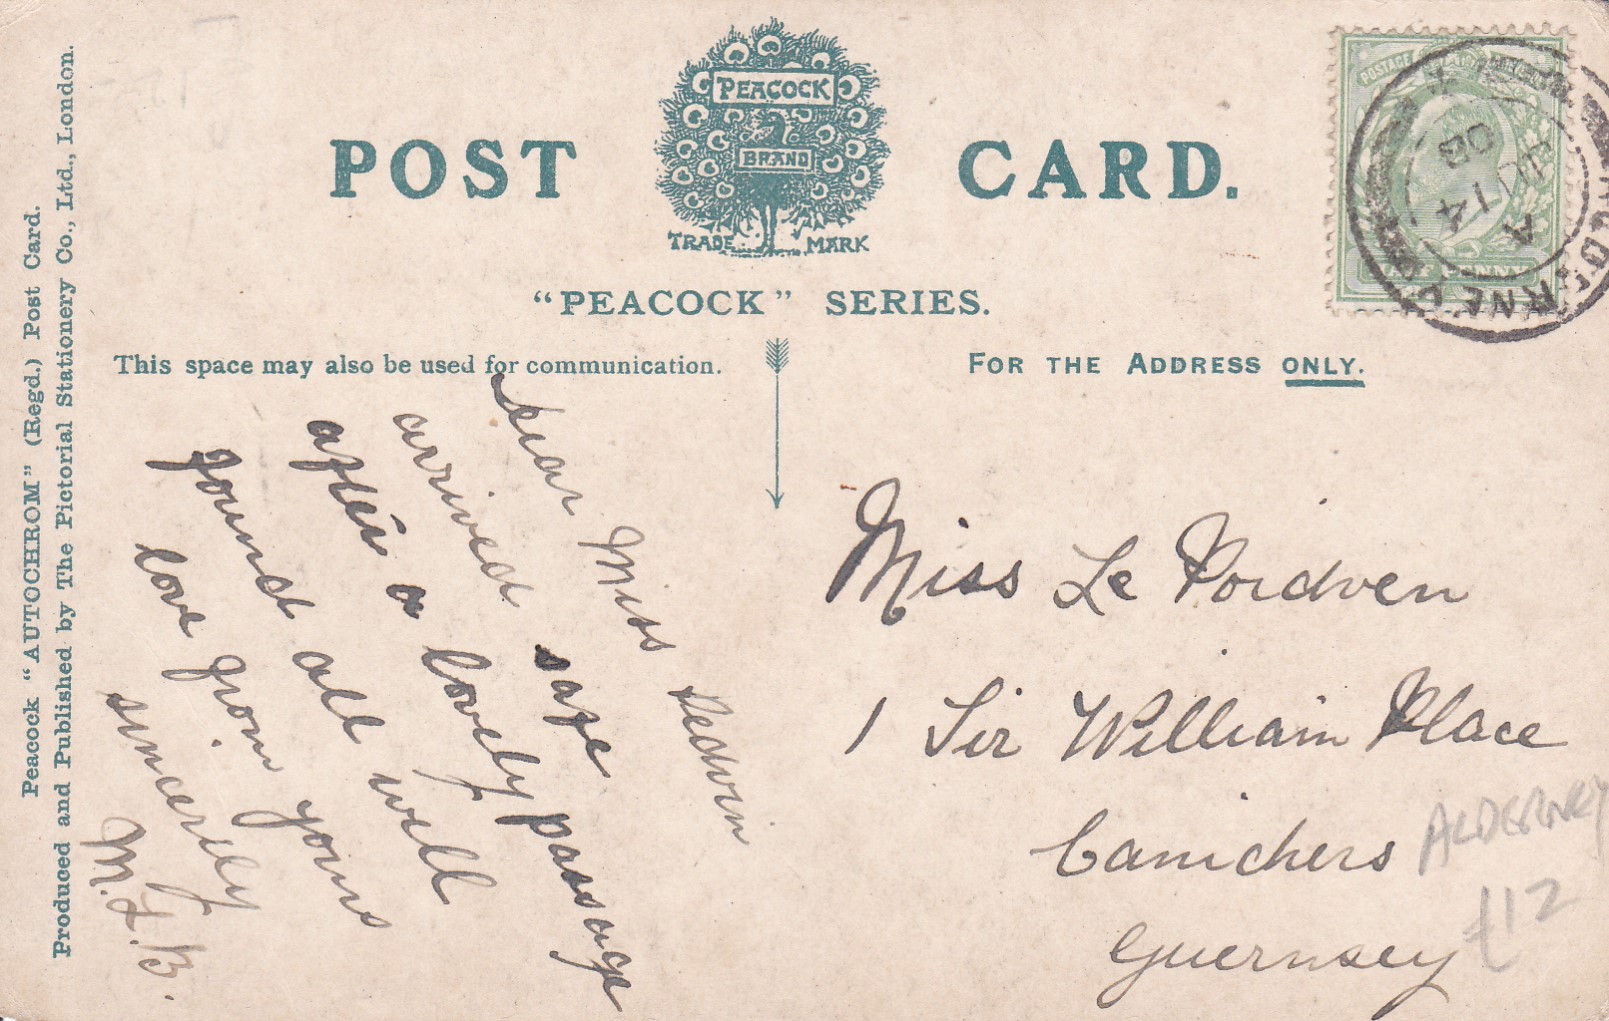 Peacock "AUTOCHROM" (Regd.) Post Card.
Produced and Published by The Pictorial Stationery Co., Ltd., London.
POST CARD.
PEACOCK
BRAND
TRADE MARK
"PEACOCK" SERIES.
This space may also be used for communication.
FOR THE ADDRESS ONLY.
POSTAGE
HALF PENNY
ALDERNEY
A
JU 14
08
Dear Miss
arrived safe
after a lovely passage
found all well
love from yours
sincerely
M. L. B.
Miss Le Poidven
1 Sir William Place
Canichers
Guernsey
ALDERNEY
£12